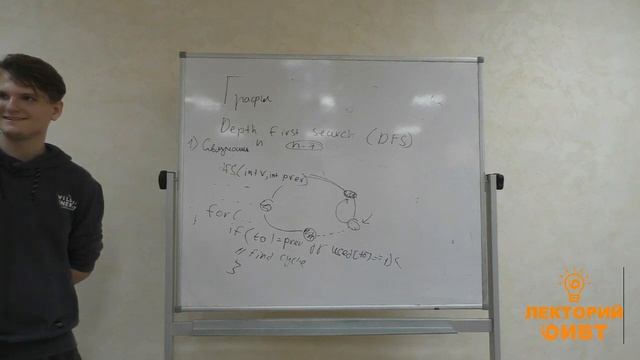 Графы
Depth first search (DFS)
1) Связность n n-1
dfs(int v, int prev)
for(
if(to != prev or used[to]==1){
// find cycle
}
ЛЕКТОРИЙ
ФИВТ